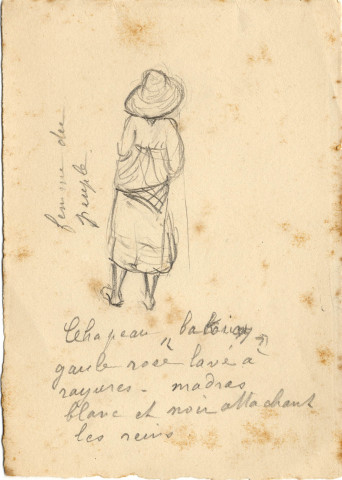 femme du
peuple
Chapeau "bakoua"
gaule rose lavé à
rayures - madras
blanc et noir attachant
les reins